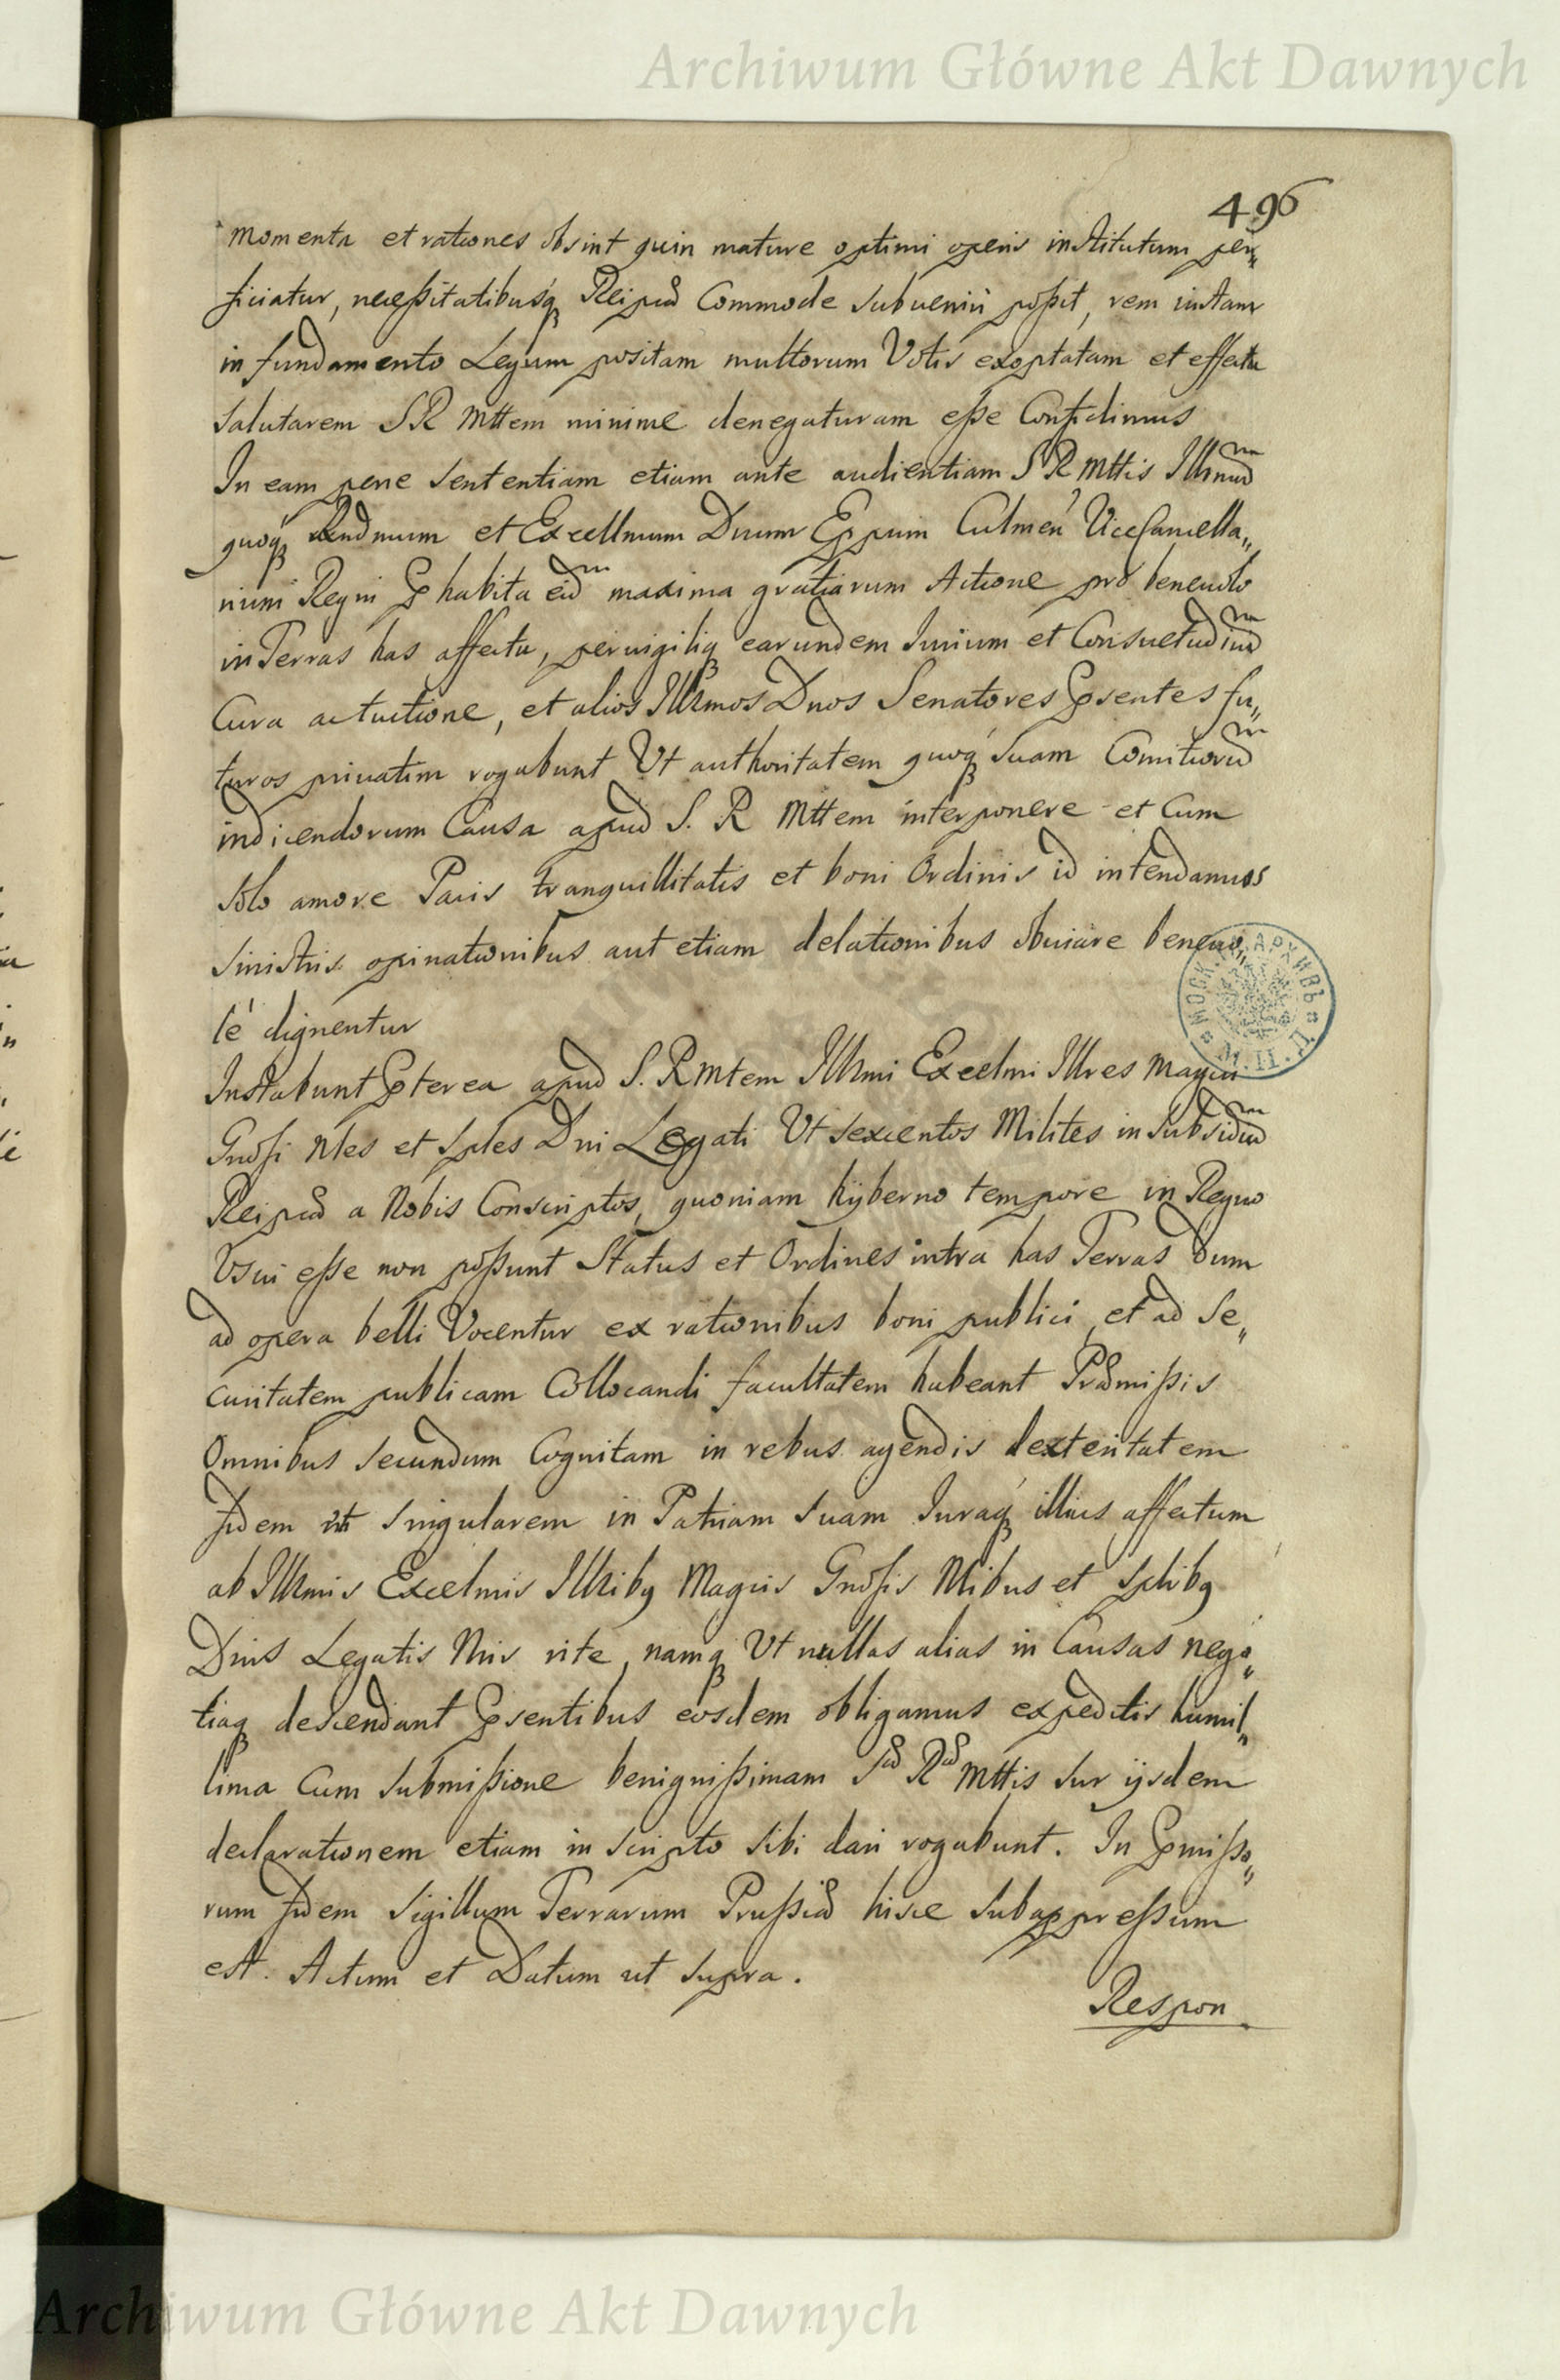 Archiwum Główne Akt Dawnych
496
momenta et rationes obsint quin mature optimi operis institutum per„
ficiatur, necessitatibusq Reipub Commode subveniri possit, rem iustam
in fundamento Legum positam multorum Votis exoptatam et effectu
salutarem S R Mttem minime denegaturam esse Confidimus
In eam pene sententiam etiam ante audientiam S R Mttis Illmum
quoq Rndmum et Excellmum Dnum Eppum Culmen ViceCancella„
rium Regni Prhabita eidm maxima gratiarum Actione pro benevolo
in Terras has affectu, pervigiliq earundem Iurium et Consuetudinum
Cura ac tuitione, et alios Illrmos Dnos Senatores Prsentes fu„
turos privatim rogabunt Vt authoritatem quoq suam Comitiorum
indicendorum Causa apud S. R Mttem interponere et Cum
solo amore Pacis tranquillitatis et boni Ordinis id intendamus
sinistris opinationibus aut etiam delationibus obviare benevo„
le dignentur
МОСК. АРХИВЪ М. Ю.
Instabunt Prterea apud S. R Mtem Illrmi Excelmi Illres Magci
Gnosi Nles et Sples Dni Legati Vt sexcentos Milites in Subsidium
Reipub a Nobis Conscriptos, quoniam hyberno tempore in Regno
Vsui esse non possunt Status et Ordines intra has Terras dum
ad opera belli Vocentur ex rationibus boni publici, et ad se„
curitatem publicam Collocandi facultatem habeant Præmissis
Omnibus secundum Cognitam in rebus agendis dexteritatem
fidem et singularem in Patriam suam Iuraq illius affectum
ab Illrmis Excelmis Illribq Magcis Gnosis Nlibus et Splibq
Dnis Legatis Nris rite, namq Vt nullas alias in Causas nego„
tiaq descendant Prsentibus eosdem obligamus expeditis humil„
lima Cum submissione benignissimam Sæ Ræ Mttis sur ijsdem
declarationem etiam in scripto sibi dari rogabunt. In Prmisso„
rum fidem Sigillum Terrarum Prussiæ hisce subappressum
est. Actum et Datum ut supra.
Respon
Archiwum Główne Akt Dawnych